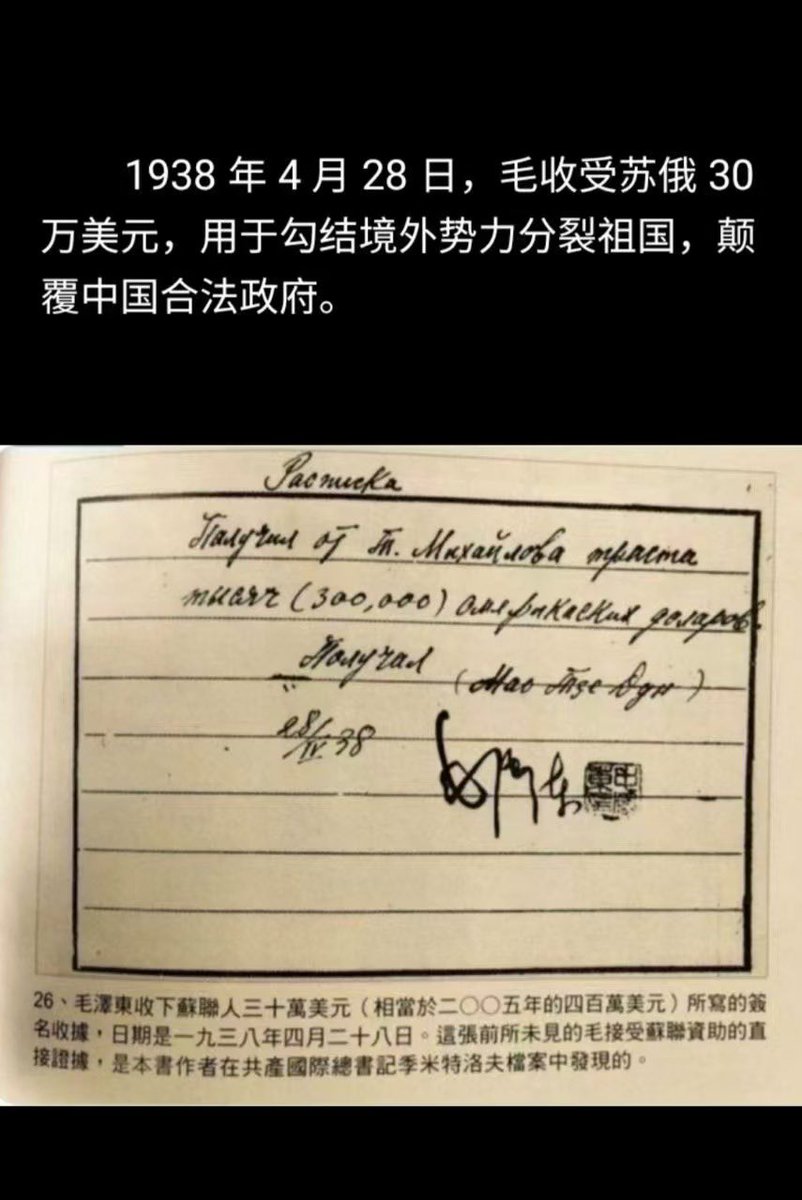 1938 年 4 月 28 日，毛收受苏俄 30
万美元，用于勾结境外势力分裂祖国，颠
覆中国合法政府。
Расписка
Получил от Т. Михайлова триста
тысяч (300,000) америкаских доларов.
Получил (Мао Тзе Дун)
28/IV 38
26、毛澤東收下蘇聯人三十萬美元（相當於二〇〇五年的四百萬美元）所寫的簽
名收據，日期是一九三八年四月二十八日。這張前所未見的毛接受蘇聯資助的直
接證據，是本書作者在共產國際總書記季米特洛夫檔案中發現的。